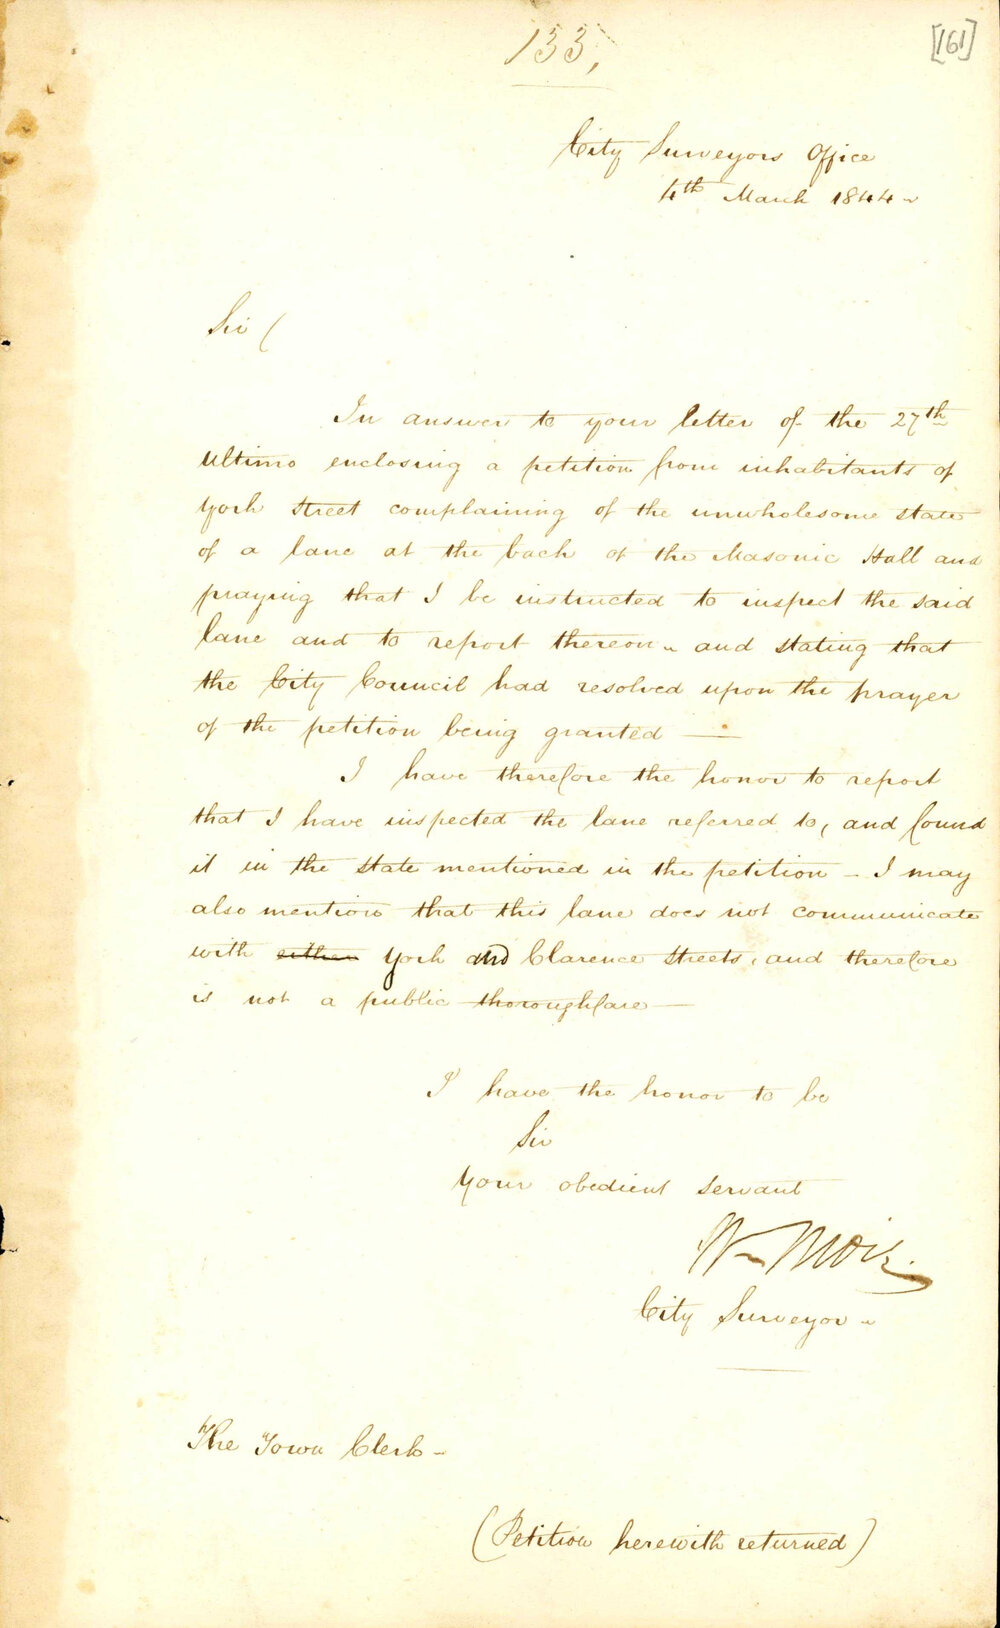 133,
[161]
City Surveyors Office
4th March 1844
Sir (
In answer to your letter of the 27th
Ultimo enclosing a petition from inhabitants of
York Street complaining of the unwholesome state
of a lane at the back of the Masonic Hall and
praying that I be instructed to inspect the said
lane and to report thereon – and stating that
the City Council had resolved upon the prayer
of the petition being granted —
I have therefore the honor to report
that I have inspected the lane referred to, and found
it in the state mentioned in the petition – I may
also mention that this lane does not communicate
with either York and Clarence Streets, and therefore
is not a public thoroughfare —
I have the honor to be
Sir
Your obedient servant
Wm Moir
City Surveyor –
The Town Clerk –
(Petition herewith returned)